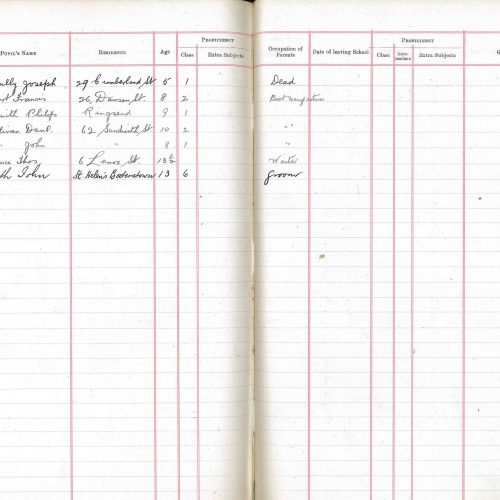 Proficiency
Pupil's Name Residence Age Class Extra Subjects
Joseph 29 Cumberland St. 5 1
Francis 26, Dawson St. 8 2
Philip Ringsend 9 1
Danl. 62 Sandwith St. 10 2
John " 8 1
Thos. 6 Lenox St. 13½
John St. Helen's Booterstown 13 6
Proficiency
Occupation of Parents Date of leaving School Class Inter-mediate Extra Subjects
Dead
Boot Manufacturer
"
"
Waiter
Groom